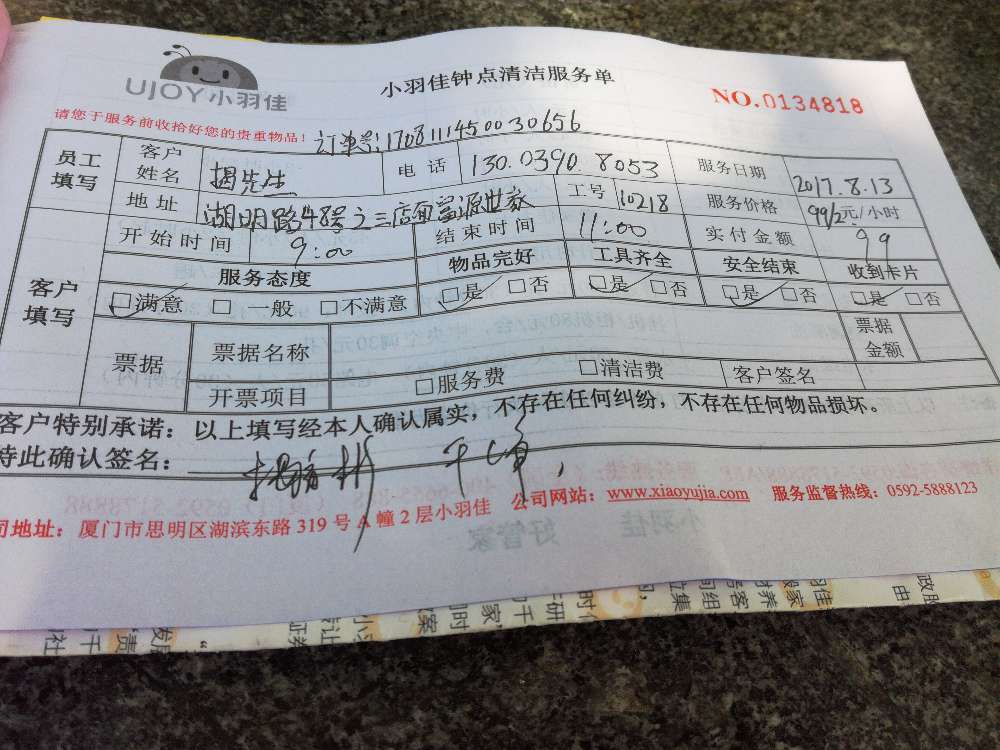 UJOY小羽佳
小羽佳钟点清洁服务单
NO.0134818
请您于服务前收拾好您的贵重物品！
订单号:170811145003０656
员工填写 客户姓名 揭先生 电话 130.0390.8053 服务日期 2017.8.13
地址 湖明路48号之三店面富源世家 工号 10218 服务价格 99/2元/小时
开始时间 9:00 结束时间 11:00 实付金额 99
客户填写 服务态度 物品完好 工具齐全 安全结束 收到卡片
□满意 □一般 □不满意 □是 □否 □是 □否 □是 □否 □是 □否
票据 票据名称 票据金额
开票项目 □服务费 □清洁费 客户签名
客户特别承诺：以上填写经本人确认属实，不存在任何纠纷，不存在任何物品损坏。
特此确认签名：
司地址：厦门市思明区湖滨东路319号A幢2层小羽佳 公司网站：www.xiaoyujia.com 服务监督热线：0592-5888123